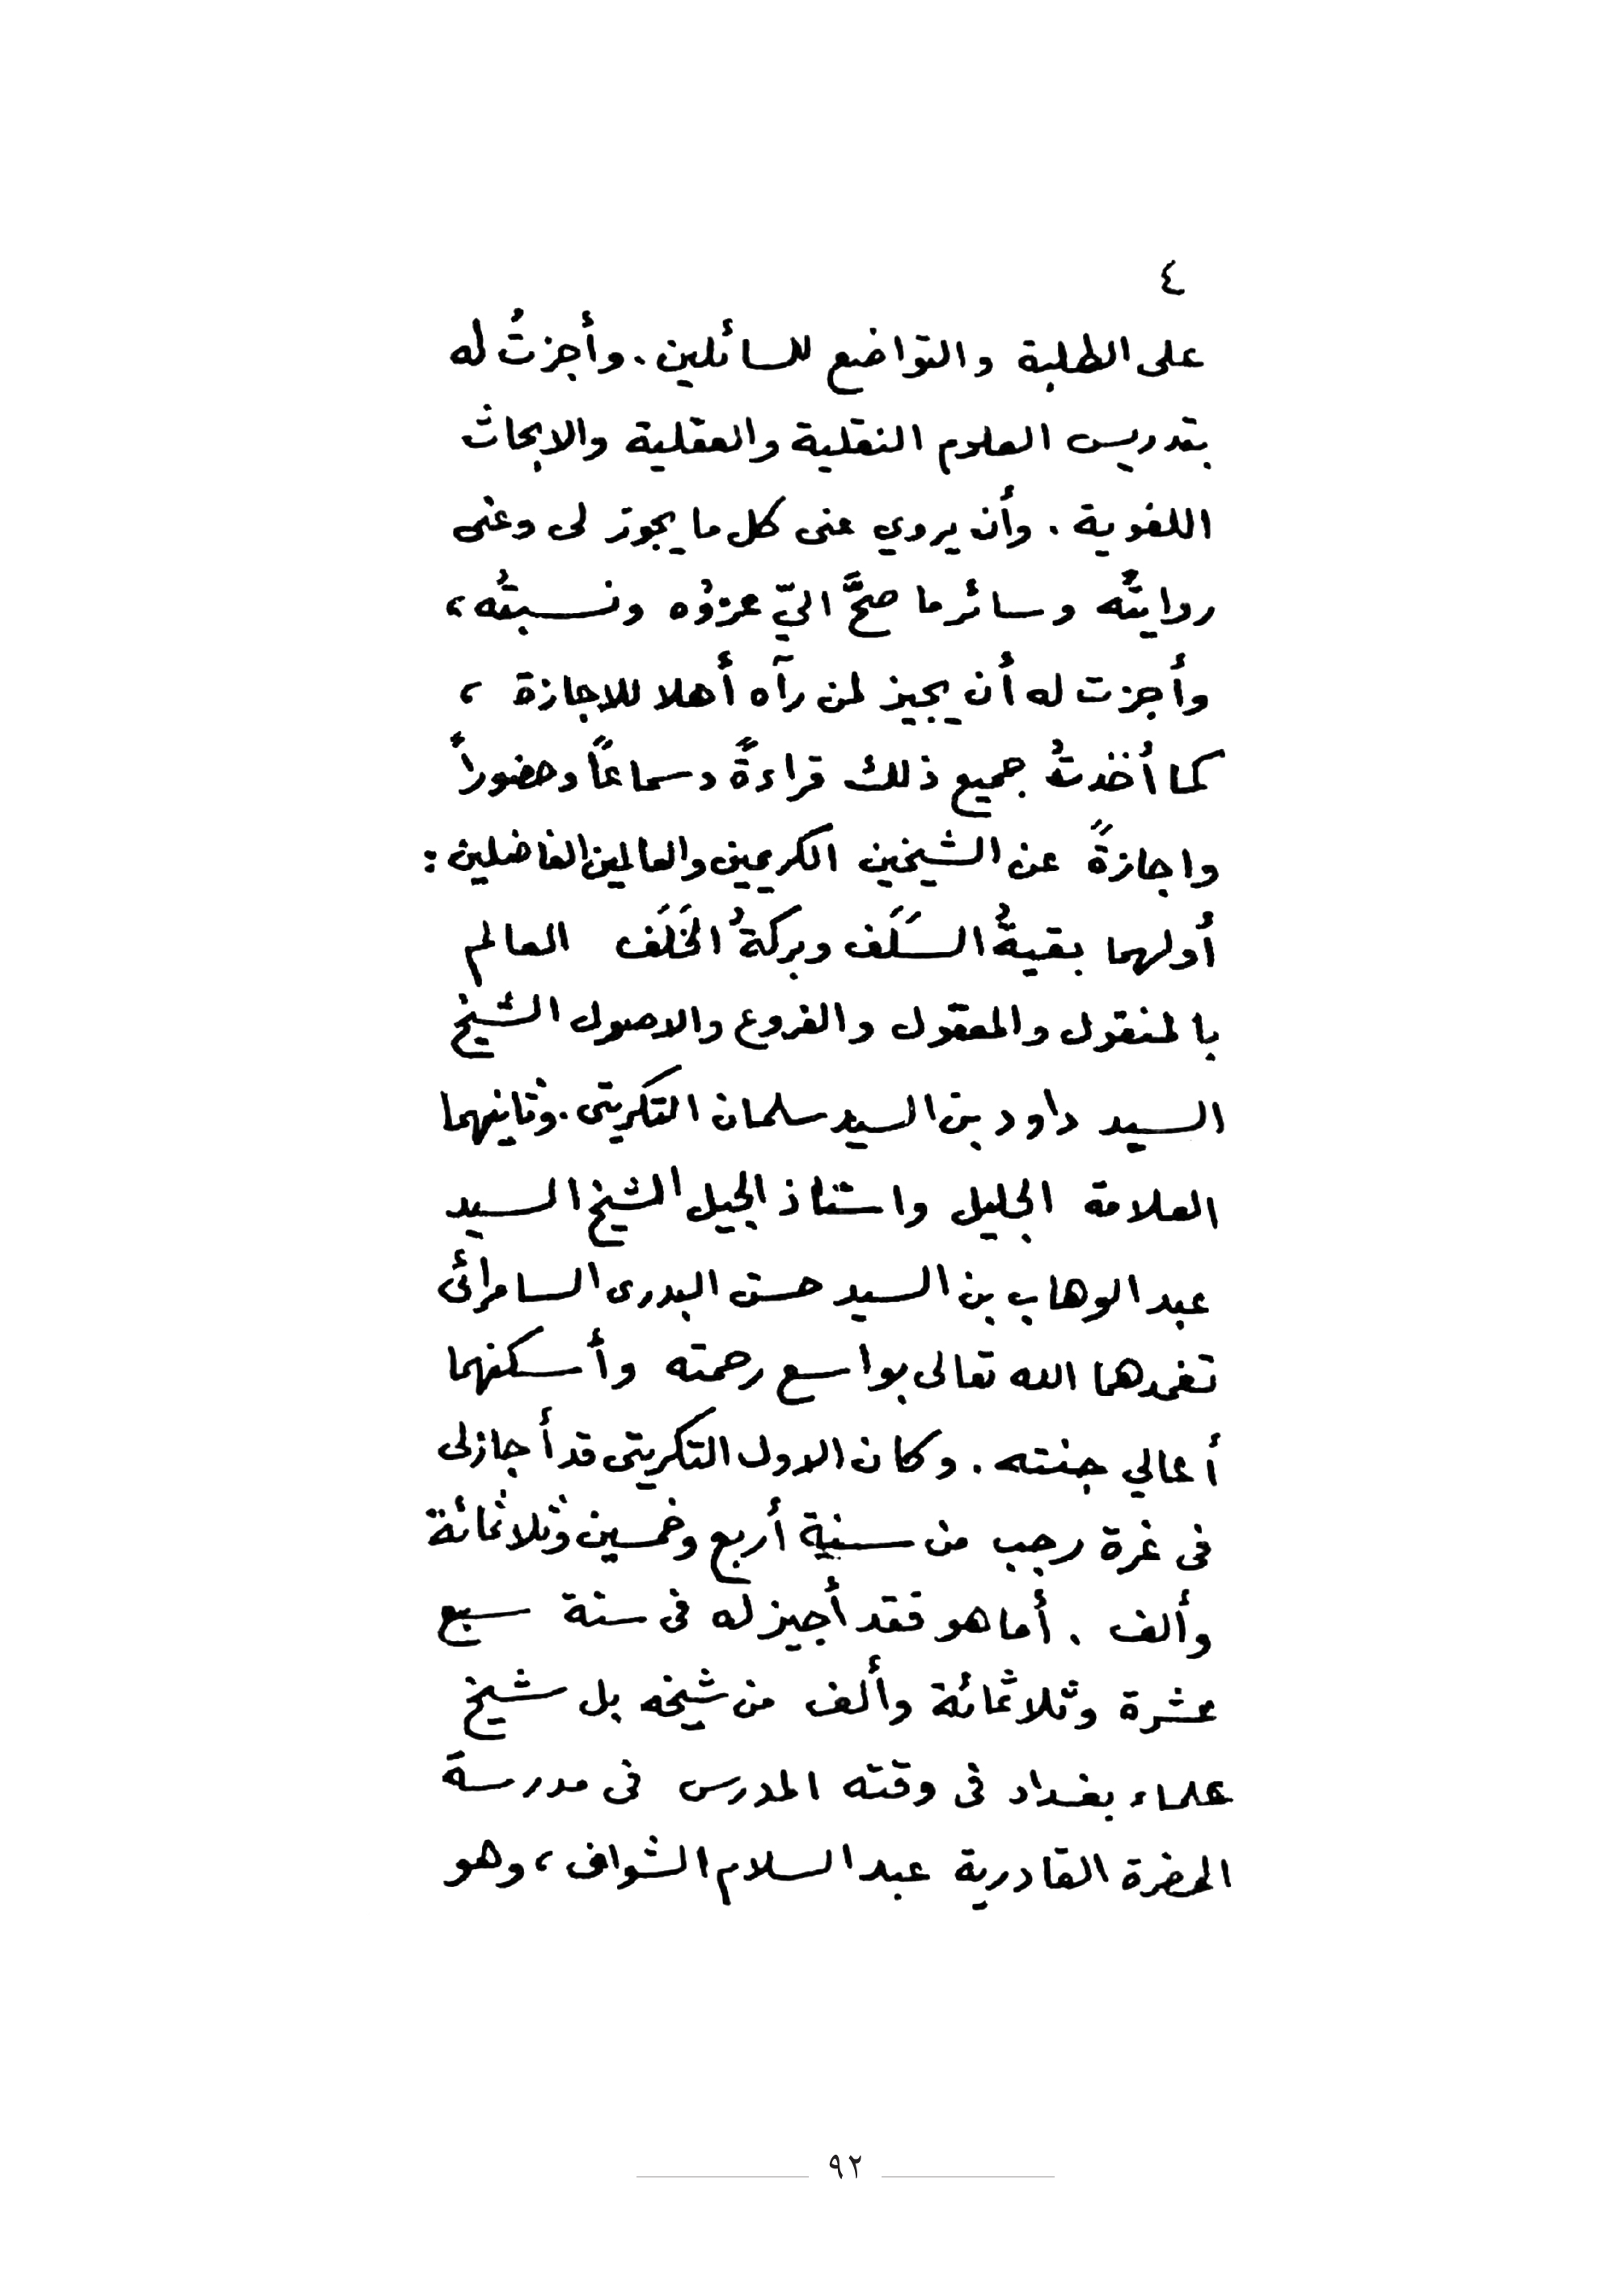 ٤
على الطلبة والتواضع للسائلين. وأجزتُ له
بتدريس العلوم النقلية والعقلية والابحاث
اللغوية. وأن يروي عنى كل ما يجوز لى وعنى
روايتُه وسائر ما صحَّ اليّ عزوُه ونسبتُه،
وأجزت له أن يجيز لمن رآه أهلا للاجازة،
كما أخذتُ جميع ذلك قراءةً وسماعاً وحضوراً
واجازةً عن الشيخين الكريمين والعالمين الفاضلين:
أولهما بقيةُ السَلَف وبركةُ الخَلَف العالم
بالمنقول والمعقول والفروع والاصول الشيخ
السيد داود بن السيد سلمان التكريتى. وثانيهما
العلامة الجليل واستاذ الجيل الشيخ السيد
عبد الوهاب بن السيد حسن البدرى السامرائى
تغمدهما الله تعالى بواسع رحمته وأسكنهما
أعالي جنته. وكان الاول التكريتى قد أجازلى
فى غرة رجب من سنية أربع وخمسين وثلاثمائة
وألف. أما هو فقد أجيز له فى سنة سبع
عشرة وثلاثمائة وألف من شيخه بل شيخ
علماء بغداد فى وقته المدرس فى مدرسة
الحضرة القادرية عبد السلام الشواف، وهو
٩٢